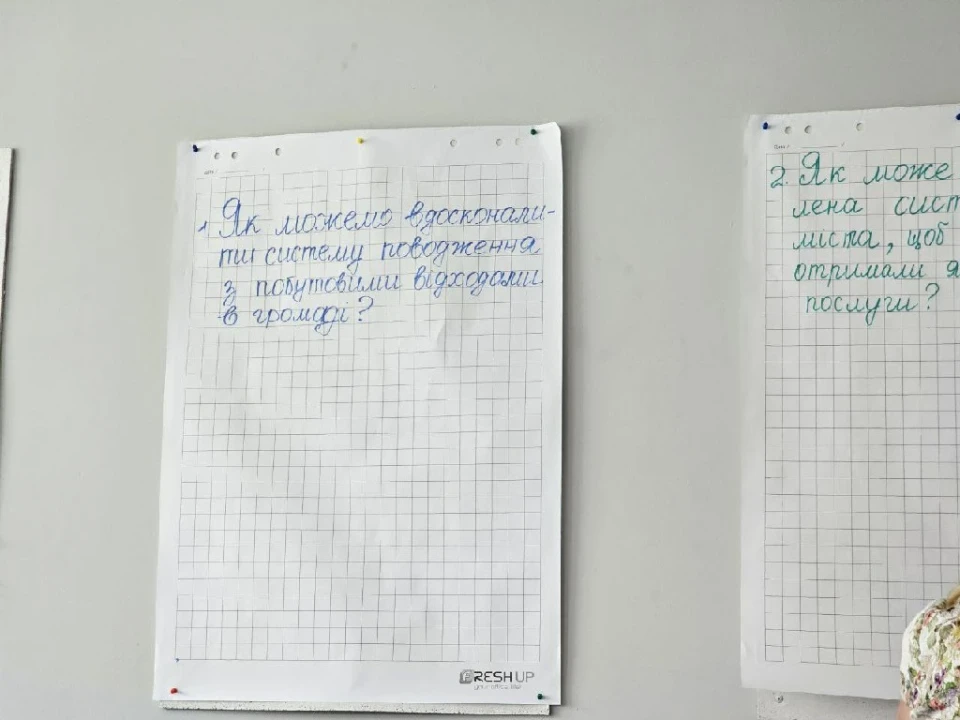 1. Як можемо вдосконали-
ти систему поводження
з побутовими відходами
в громаді?
FRESH UP
your office life
2. Як може
лена сист
міста, щоб
отримали я
послуги?